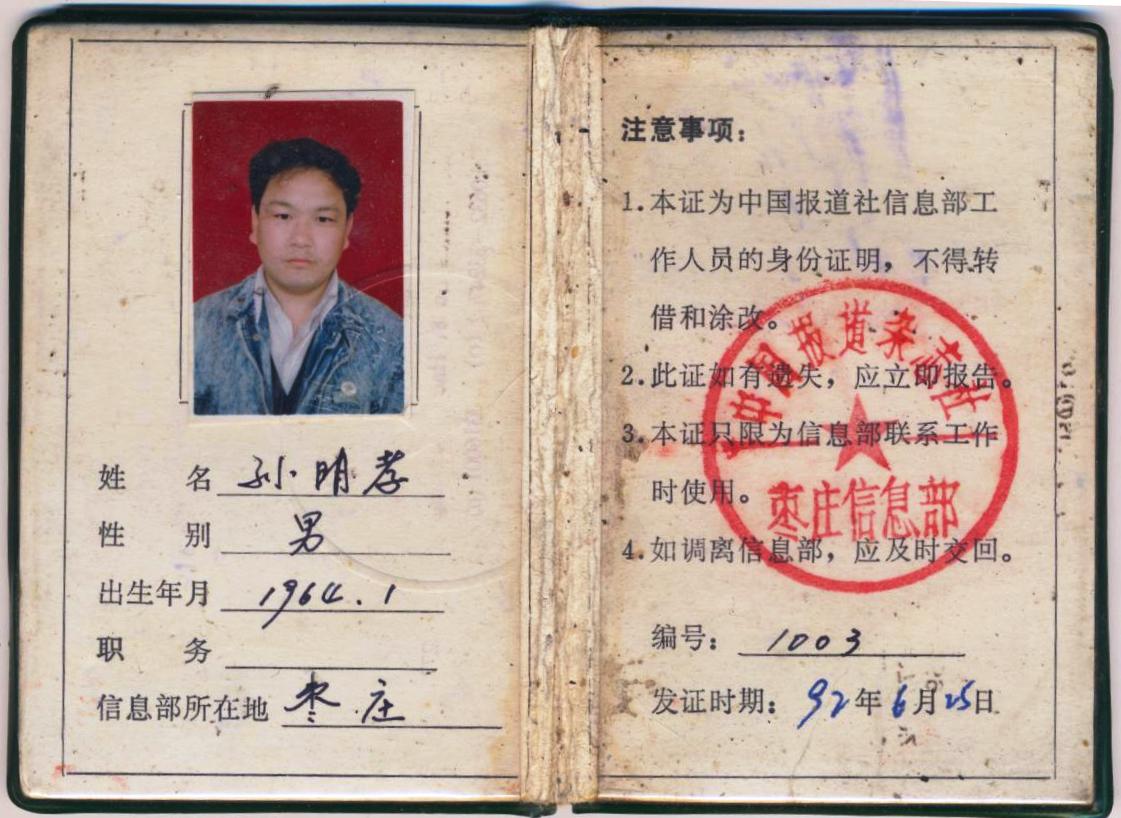 姓 名 孙明孝
性 别 男
出生年月 1964.1
职 务
信息部所在地 枣庄
注意事项：
1.本证为中国报道社信息部工
作人员的身份证明，不得转
借和涂改。
2.此证如有遗失，应立即报告。
3.本证只限为信息部联系工作
时使用。
4.如调离信息部，应及时交回。
编号： 1003
发证时期：92年6月25日
中国报道杂志社
枣庄信息部